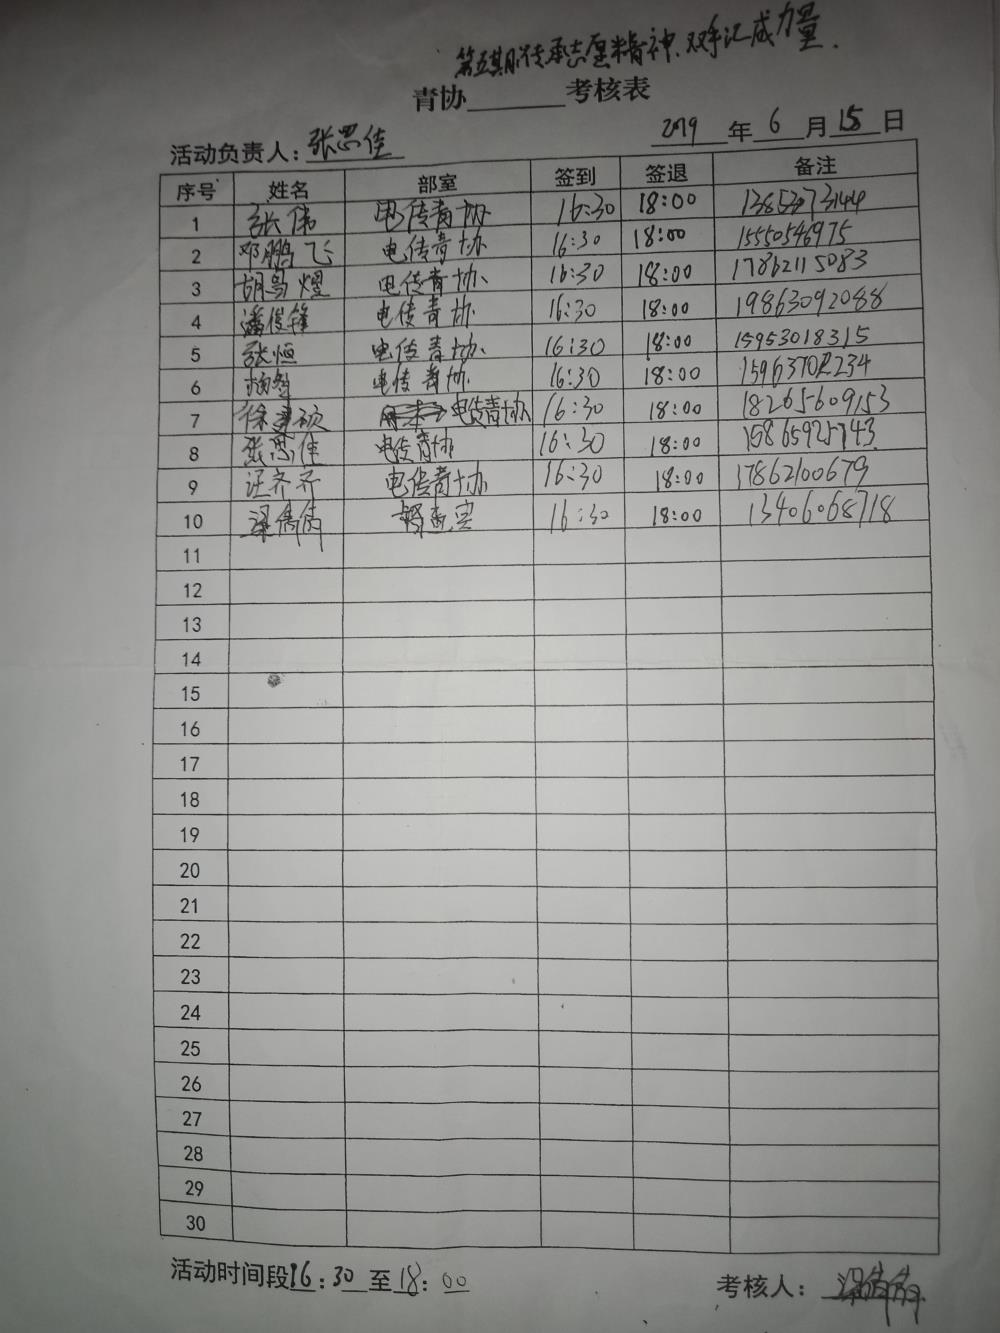 第五期 传承志愿精神、双手汇成力量.
青协______考核表
2019 年 6 月 15 日
活动负责人: 张思佳
序号 姓名 部室 签到 签退 备注
1 张伟 电传青协 16:30 18:00 13853073144
2 邓鹏飞 电传青协 16:30 18:00 15550546975
3 电传青协 16:30 18:00 17862115083
4 潘俊锋 电传青协 16:30 18:00 19863092088
5 张恒 电传青协 16:30 18:00 15953018315
6 电传青协 16:30 18:00
7 电传青协 16:30 18:00 18265609153
8 张思佳 电传青协 16:30 18:00
9 汪齐齐 电传青协 16:30 18:00 17862100679
10 梁倩倩 16:30 18:00 13406068718
11
12
13
14
15
16
17
18
19
20
21
22
23
24
25
26
27
28
29
30
活动时间段 16:30 至 18:00
考核人: 梁倩倩